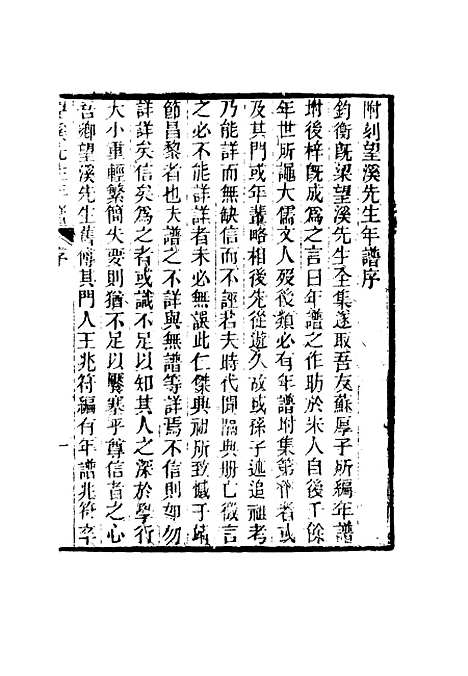 附刻望溪先生年譜序
鈞衡旣梁望溪先生全集遂取吾友蘇厚子所編年譜
坿後梓旣成爲之言曰年譜之作昉於宋人自後千餘
年世所邇大儒文人歿後類必有年譜坿集第作者或
及其門或年輩略相後先從遊久故或孫子逑追祖考
乃能詳而無缺信而不誣若夫時代閒隔典册亡微言
之必不能詳詳者未必無誤此仁傑興祖所致憾於靖
節昌黎者也夫譜之不詳與無譜等詳焉不信則如勿
詳詳矣信矣爲之者或識不足以知其人之深於學行
大小重輕繁簡失要則猶不足以饜塞乎尊信者之心
吾鄉望溪先生舊傳其門人王兆符編有年譜兆符卒
望溪先生年譜 序 一